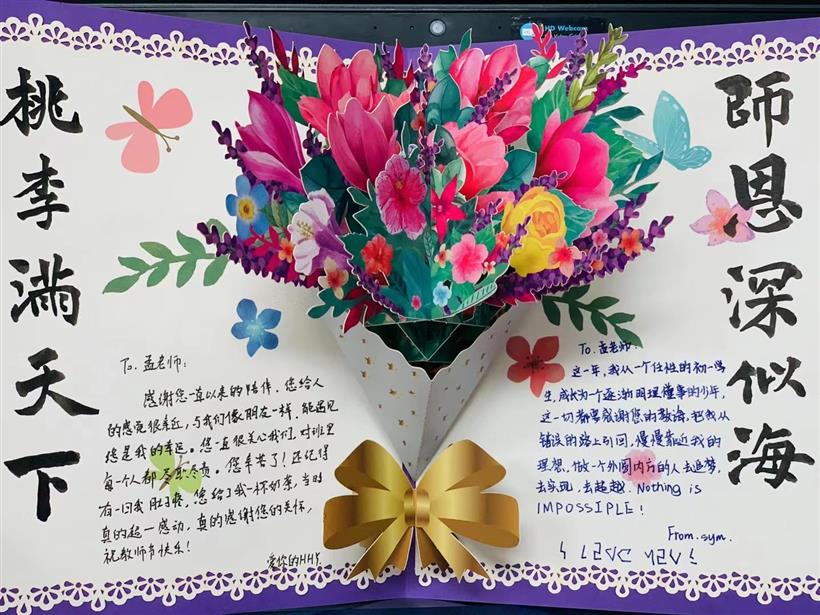 HD Webcam
桃李滿天下
師恩深似海
To. 孟老师：
感谢您一直以来的陪伴。您给人
的感觉很亲近，与我们像朋友一样。能遇见
您是我的幸运。您一直很关心我们。对班里
每一个人都尽职尽责。您辛苦了！还记得
有一回我肚子疼，您给了我一杯奶茶，当时
真的超一感动，真的感谢您的关怀，
祝教师节快乐！
爱你的HHY.
To. 孟老师：
这一年，我从一个任性的初一学
生，成长为一个逐渐明理懂事的少年，
这一切都要感谢您的教诲，把我从
错误的路上引回，慢慢靠近我的
理想，做个外圆内方的人去追梦，
去实现，去超越. Nothing is
IMPOSSIPLE！
From. sym.